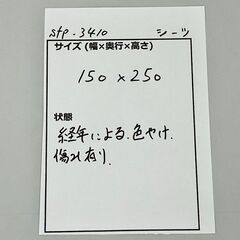 sfp-3410 シーツ
サイズ (幅×奥行×高さ)
150 x 250
状態
経年による.色やけ.
傷み有り.